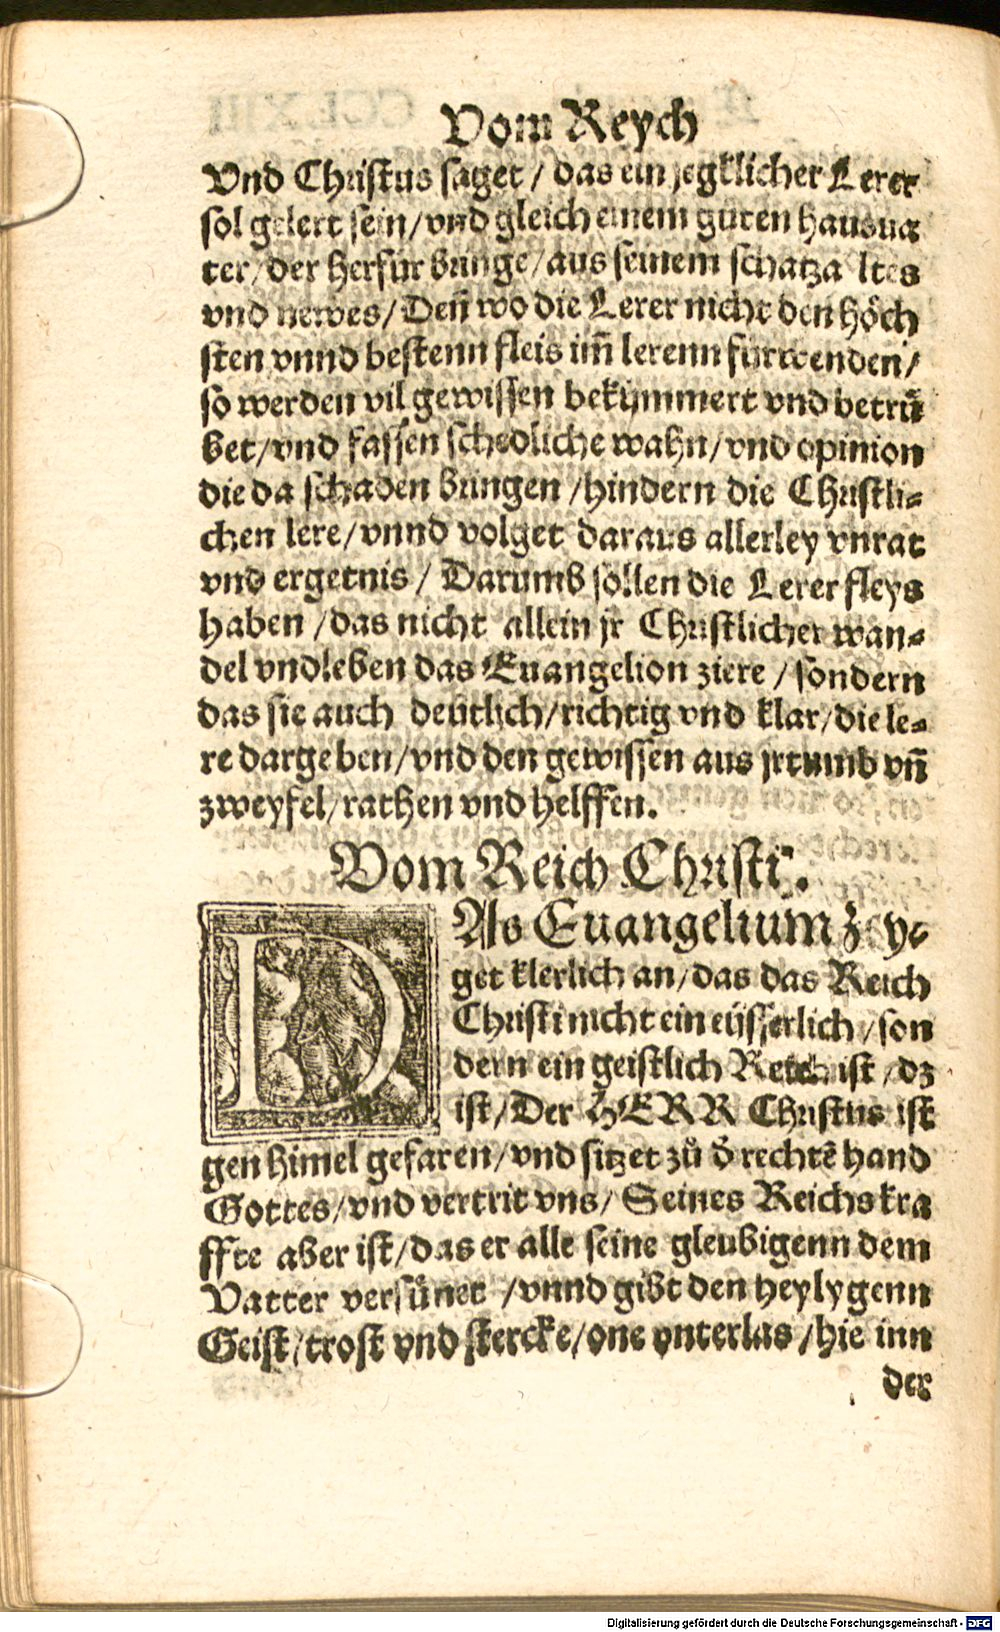 Vom Reych
Vnd Christus saget / das ein jegklicher Lerer
sol gelert sein/vnd gleich einem guten hausua
ter/der herfür bringe/aus seinem schatza ltes
vnd newes/Deñ wo die Lerer nicht den höch
sten vnnd bestenn fleis im̃ lerenn fürwenden/
so werden vil gewissen bekümmert vnd betrü
bet/vnd fassen schedliche wahn/vnd opinion
die da schaden bringen /hindern die Christli⸗
chen lere/vnnd volget daraus allerley vnrat
vnd ergetnis / Darumb sollen die Lerer fleys
haben /das nicht allein jr Christlicher wan⸗
del vndleben das Euangelion ziere /sondern
das sie auch deütlich/richtig vnd klar/die le⸗
re dargeben/vnd den gewissen aus jrtumb vñ
zweyfel/rathen vnd helffen.
Vom Reich Christi.
DAs Euangelium zey⸗
get klerlich an/das das Reich
Christi nicht ein eüsserlich /son
dern ein geistlich Reich ist /dz
ist/Der HERR Christus ist
gen himel gefaren/vnd sitzet zů d̕ rechtẽ hand
Gottes/vnd vertrit vns/ Seines Reichs kra
ffte aber ist/das er alle seine gleubigenn dem
Vatter versünet /vnnd gibt den heylygenn
Geist/trost vnd stercke/one vnterlas /hie inn
der
Digitalisierung gefördert durch die Deutsche Forschungsgemeinschaft - DFG